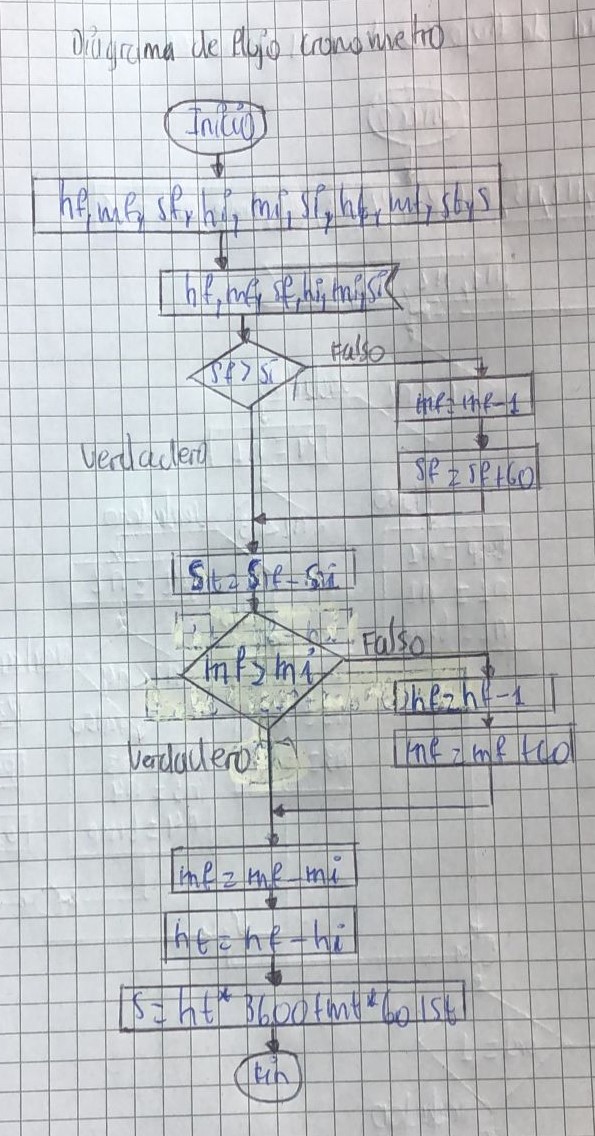 Diagrama de flujo cronometro
Inicio
hf, mf, sf, hi, mi, si, ht, mt, st, s
hf, mf, sf, hi, mi, si
sf > si
Falso
mf = mf - 1
Verdadero
sf = sf + 60
St = Sf - Si
mf > mi
Falso
hf = hf - 1
Verdadero
mf = mf + 60
mt = mf - mi
ht = hf - hi
S = ht * 3600 + mt * 60 + st
Fin